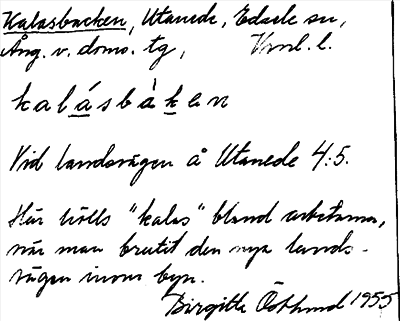 Kalasbacken, Utanede, Edsele sn,
Ång. v. doms. tg, Vnrl. l.
kalásbàken
Vid landsvägen å Utanede 4:5.
Här hölls "kalas" bland arbetarna,
när man brutit den nya lands-
vägen inom byn.
Birgitta Östlund 1955